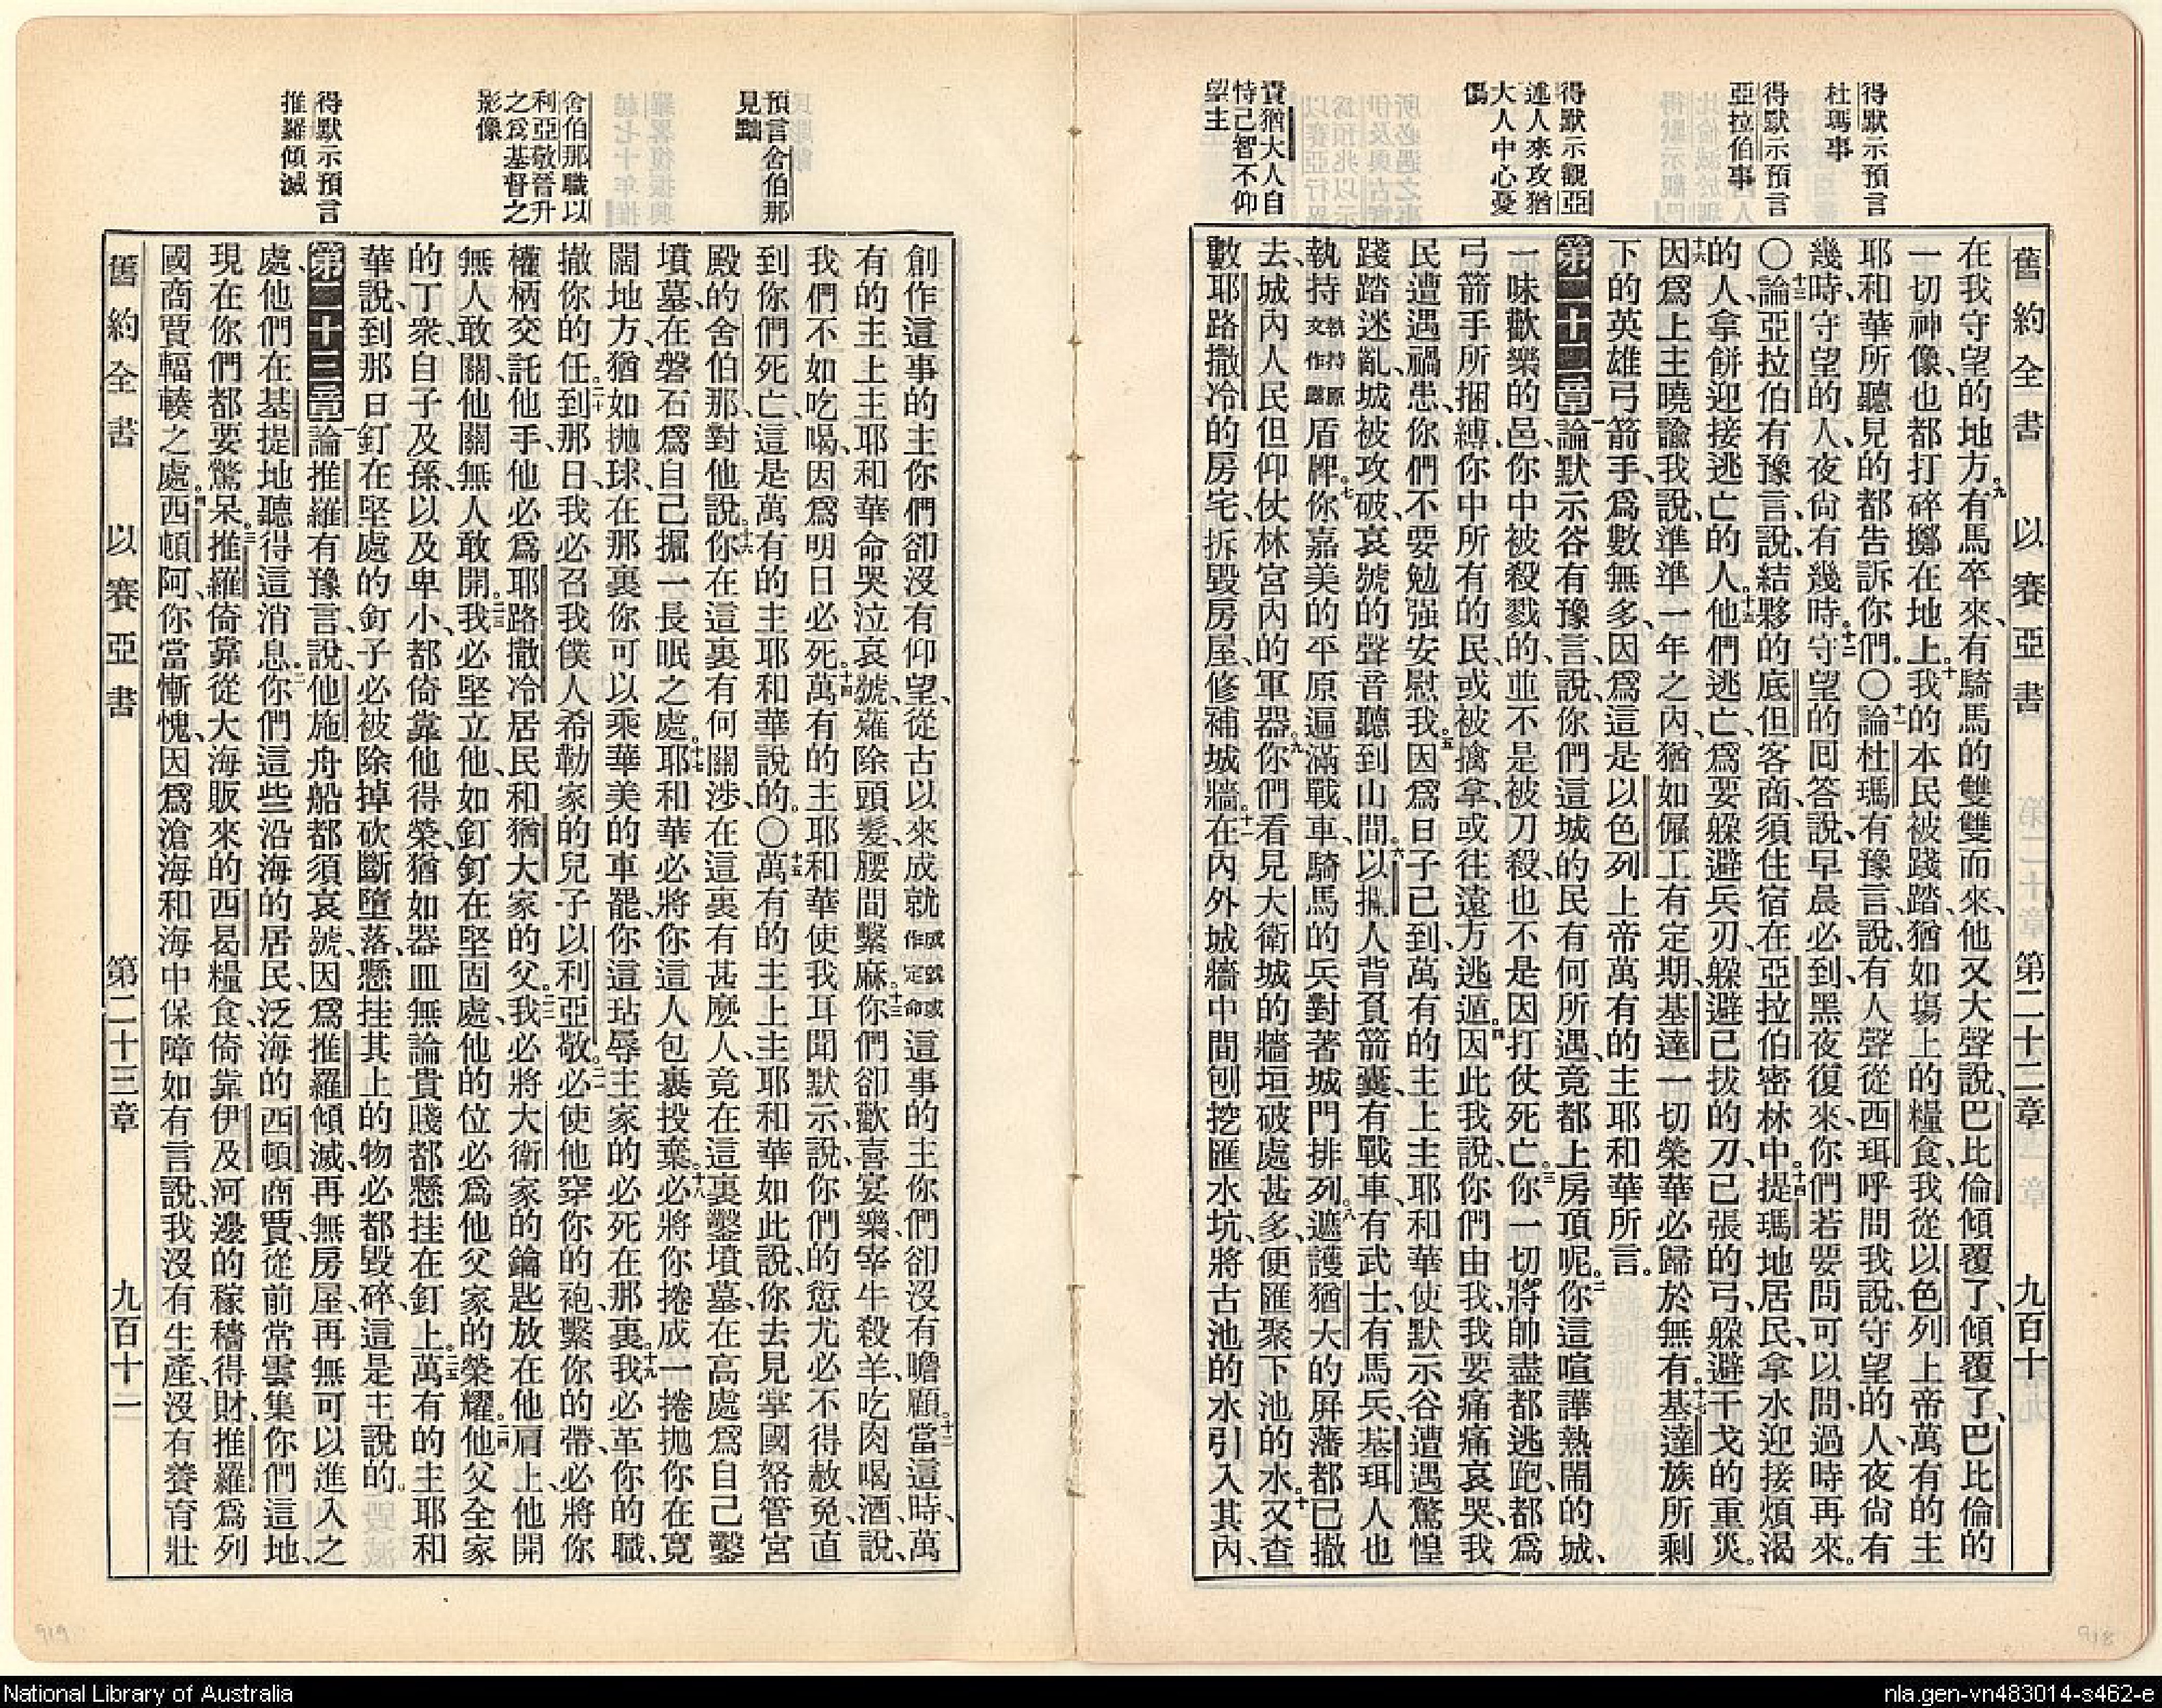 得默示預言
杜瑪事
得默示預言
亞拉伯事
得默示觀亞
述人來攻猶
大人中心憂
傷
責猶大人自
恃己智不仰
望主
舊約全書 以賽亞書 第二十二章 九百十
在我守望的地方。九有馬卒來、有騎馬的雙雙而來、他又大聲說、巴比倫傾覆了、傾覆了、巴比倫的
一切神像也都打碎擲在地上。十我的本民被踐踏、猶如塲上的糧食、我從以色列上帝萬有的主
耶和華所聽見的都告訴你們。〇十一論杜瑪有豫言、說、有人聲從西珥呼問我說、守望的人、夜尙有
幾時、守望的人、夜尙有幾時。十二守望的回答說、早晨必到、黑夜復來、你們若要問可以問、過時再來。
〇十三論亞拉伯有豫言、說、結夥的底但客商、須住宿在亞拉伯密林中。十四提瑪地居民、拿水迎接煩渴
的人、拿餅迎接逃亡的人。十五他們逃亡、爲要躱避兵刃、躱避已拔的刀、已張的弓、躱避干戈的重災。
十六因爲上主曉諭我說、準準一年之內、猶如僱工有定期、基達一切榮華必歸於無有。十七基達族所剩
下的英雄弓箭手、爲數無多、因爲這是以色列上帝萬有的主耶和華所言。
第二十二章 一論默示谷有豫言、說、你們這城的民有何所遇、竟都上房頂呢。二你這喧譁熱鬧的城、
一味歡樂的邑、你中被殺戮的、並不是被刀殺、也不是因打仗死亡。三你一切將帥盡都逃跑、都爲
弓箭手所捆縛、你中所有的民、或被擒拿、或往遠方逃遁。四因此我說、你們由我、我要痛痛哀哭、我
民遭遇禍患、你們不要勉强安慰我。五因爲日子已到、萬有的主上主耶和華使默示谷遭遇驚惶
踐踏迷亂、城被攻破、哀號的聲音聽到山間。六以攔人背負箭囊、有戰車、有武士、有馬兵、基珥人也
執持執持原文作露盾牌。七你嘉美的平原遍滿戰車、騎馬的兵對著城門排列。八遮護猶大的屛藩都已撤
去、城內人民但仰仗林宮內的軍器。九你們看見大衛城的牆垣破處甚多、便匯聚下池的水。十又查
數耶路撒冷的房宅、拆毀房屋、修補城牆。十一在內外城牆中間刨挖匯水坑、將古池的水引入其內、
預言舍伯那
見黜
舍伯那職以
利亞敬晉升
之爲基督之
影像
得默示預言
推羅傾滅
創作這事的主你們卻沒有仰望、從古以來成就成就或作定命這事的主你們卻沒有瞻顧。十二當這時、萬
有的主上主耶和華命哭泣哀號薙除頭髮、腰間繫麻。十三你們卻歡喜宴樂、宰牛殺羊、吃肉喝酒、說、
我們不如吃喝、因爲明日必死。十四萬有的主耶和華使我耳聞默示說、你們的愆尤必不得赦免、直
到你們死亡、這是萬有的主耶和華說的。〇十五萬有的主上主耶和華如此說、你去見掌國帑管宮
殿的舍伯那、對他說。十六你在這裏有何關涉、在這裏有甚麼人、竟在這裏鑿墳墓、在高處爲自己鑿
墳墓、在磐石爲自己掘一長眠之處。十七耶和華必將你這人包裹投棄。十八必將你捲成一捲拋你在寬
闊地方、猶如拋球、在那裏你可以乘華美的車罷、你這玷辱主家的必死在那裏。十九我必革你的職、
撤你的任。二十到那日我必召我僕人希勒家的兒子以利亞敬。二一必使他穿你的袍、繫你的帶、必將你
權柄交託他手、他必爲耶路撒冷居民和猶大家的父。二二我必將大衛家的鑰匙放在他肩上、他開
無人敢關、他關無人敢開。二三我必堅立他、如釘釘在堅固處、他的位必爲他父家的榮耀。二四他父全家
的丁衆、自子及孫、以及卑小、都倚靠他得榮、猶如器皿無論貴賤都懸挂在釘上。二五萬有的主耶和
華說、到那日釘在堅處的釘子必被除掉砍斷墮落、懸挂其上的物必都毀碎、這是主說的。
第二十三章 一論推羅有豫言、說、他施舟船都須哀號、因爲推羅傾滅、再無房屋、再無可以進入之
處、他們在基提地聽得這消息。二你們這些沿海的居民、泛海的西頓商賈、從前常雲集你們這地、
現在你們都要驚呆。三推羅倚靠從大海販來的西曷糧食、倚靠伊及河邊的稼穡得財、推羅爲列
國商賈輻輳之處。四西頓阿、你當慚愧、因爲滄海和海中保障如有言說、我沒有生產、沒有養育壯
舊約全書 以賽亞書 第二十三章 九百十一
919
918
National Library of Australia
nla.gen-vn483014-s462-e